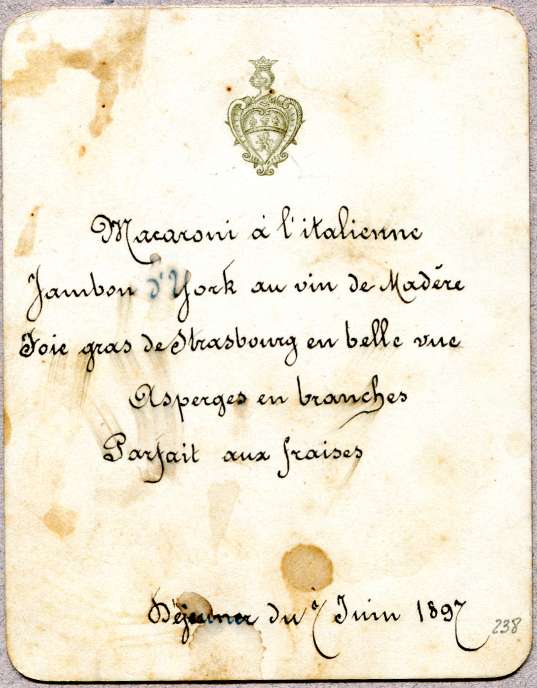 Macaroni à l'italienne
Jambon d'York au vin de Madère
Foie gras de Strasbourg en belle vue
Asperges en branches
Parfait aux fraises
Déjeuner du 7 Juin 1897
238